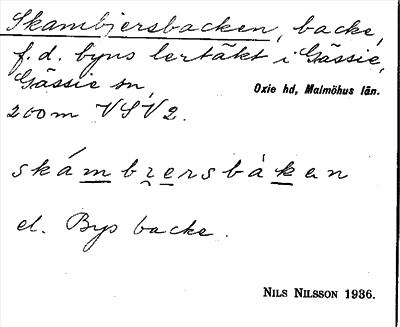 Skambjersbacken, backe,
f. d. byns lertäkt i Gässie,
Gässie sn,
Oxie hd, Malmöhus län.
200 m VSV 2.
skámbrersbàkan
el. Bys backe.
NILS NILSSON 1936.